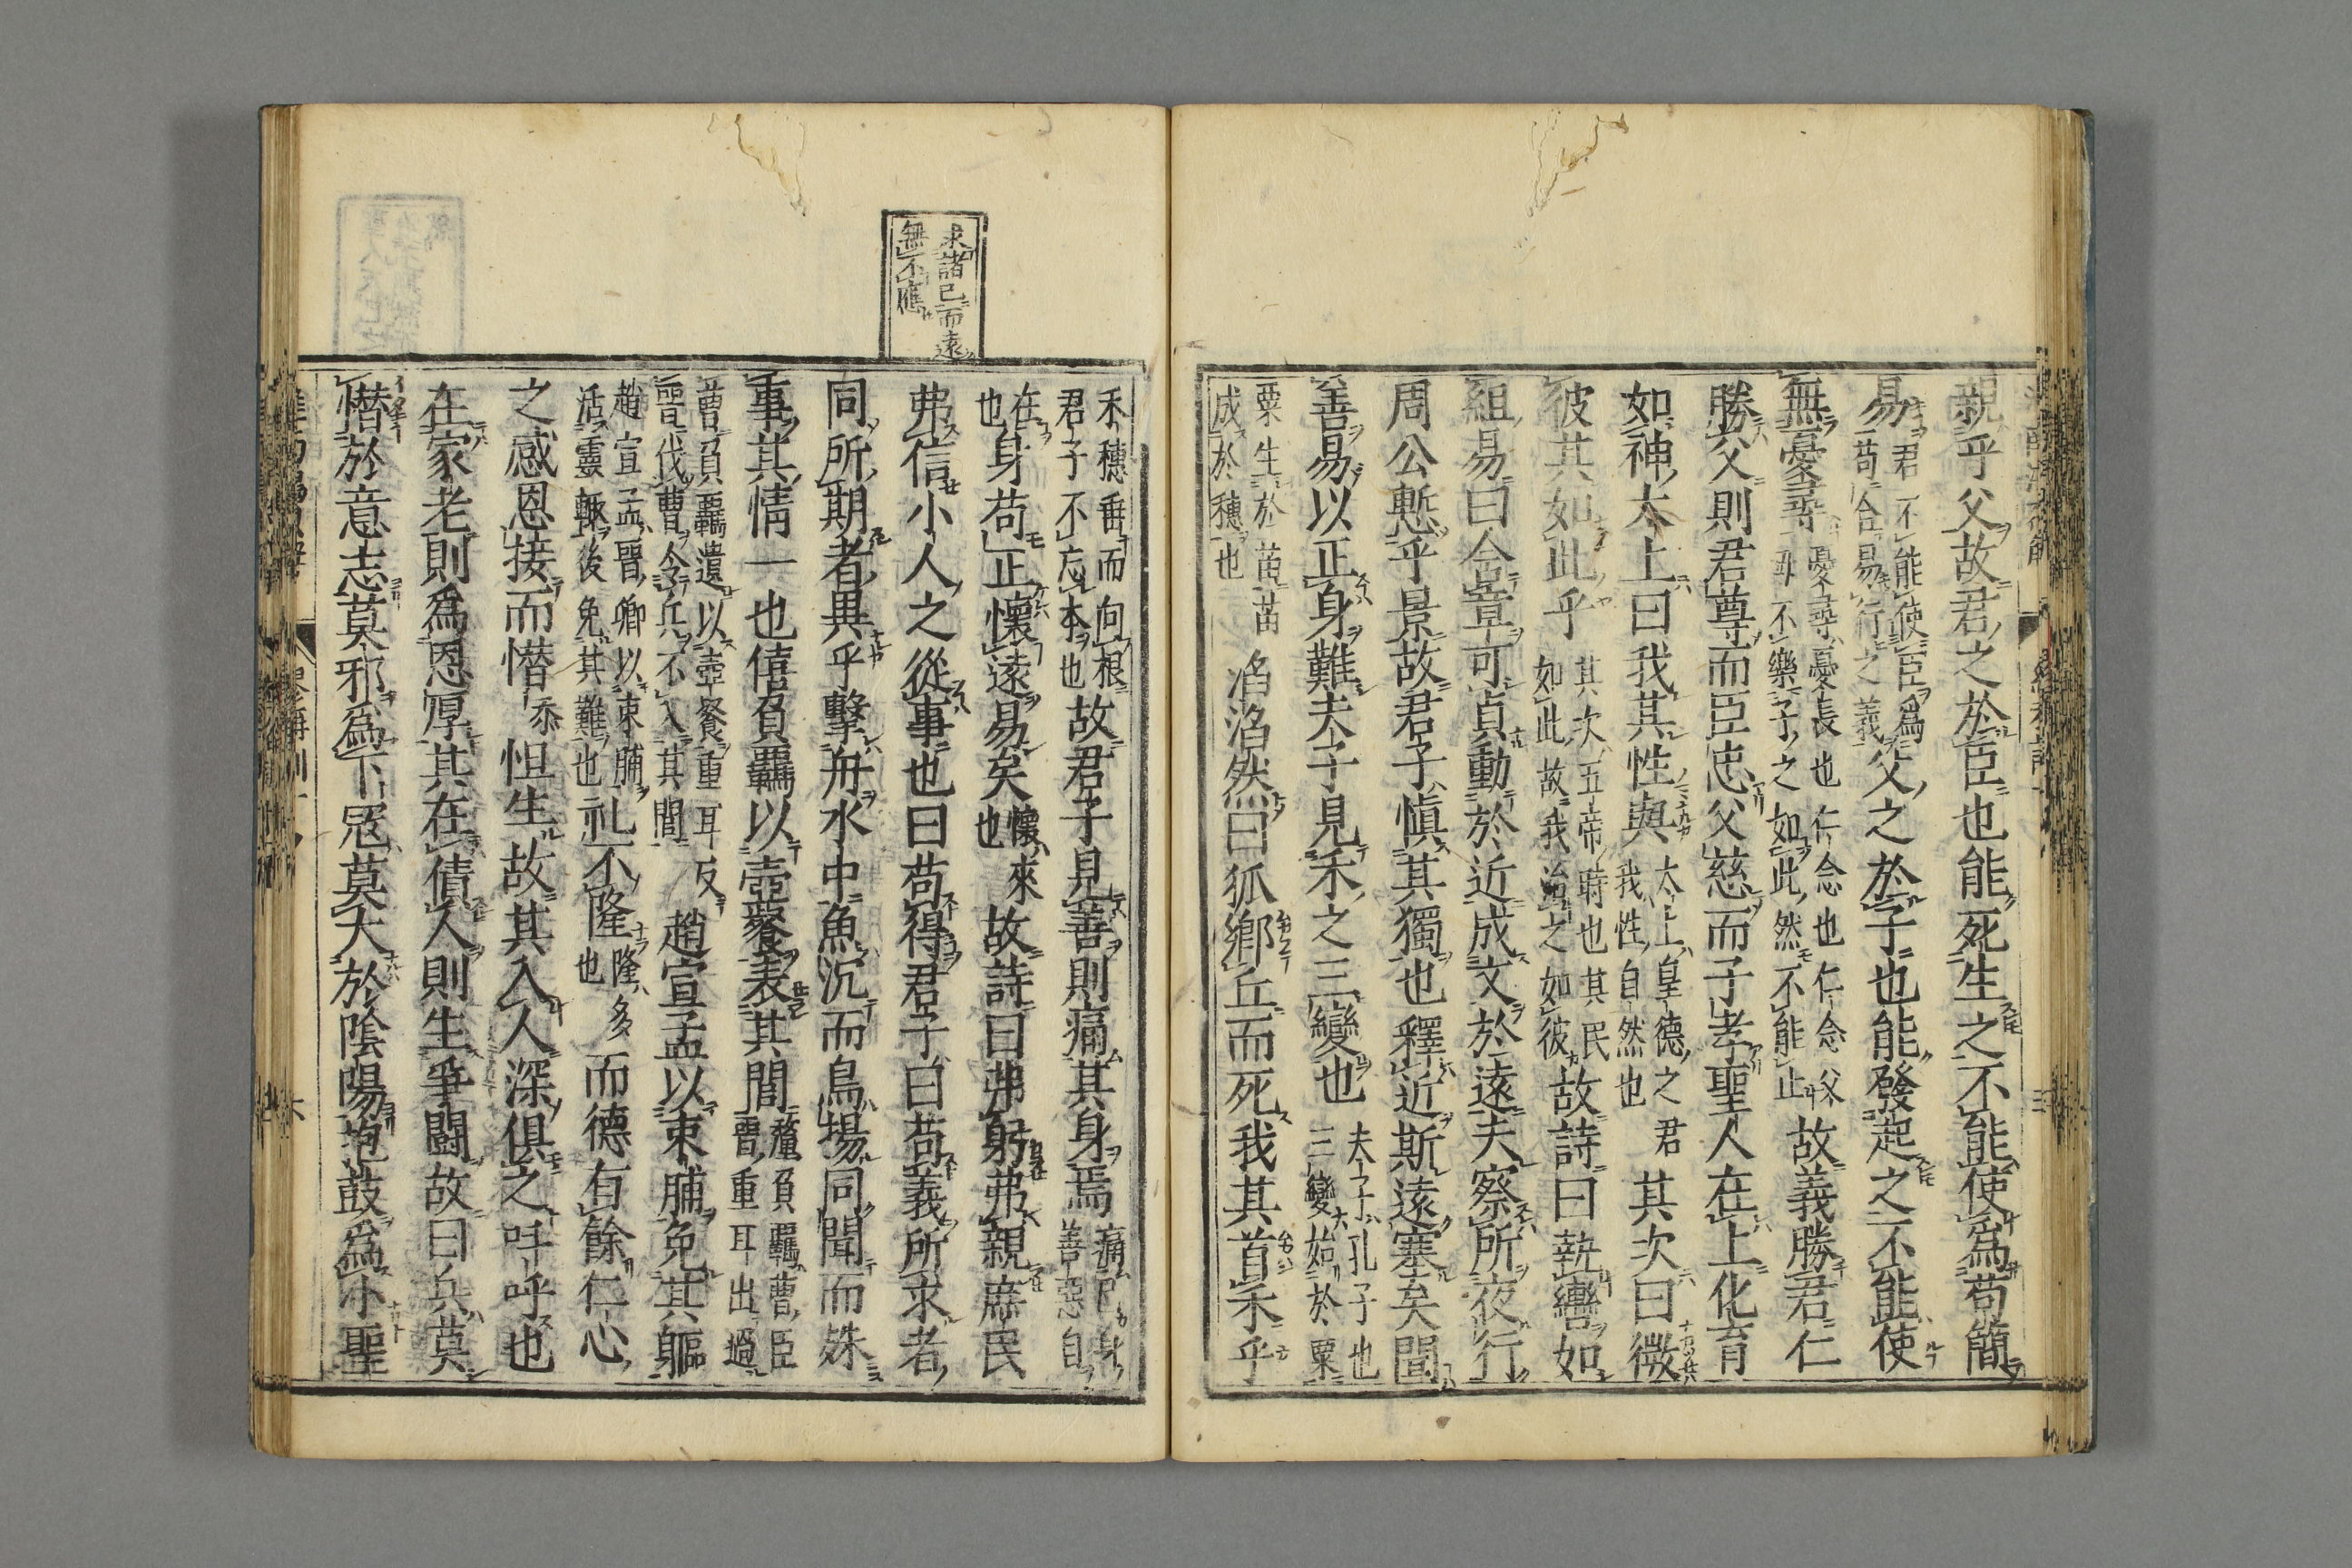 親乎父故君之於臣也能死生之不能使爲苟簡
易君不能使臣爲苟合易行之義父之於子也能發起之不能使
無憂尋憂尋憂長也仁念也仁念父母不樂子之如此然不能止故義勝君仁
勝父則君尊而臣忠父慈而子孝聖人在上化育
如神太上曰我其性與太上皇德之君我性自然也其次曰微
彼其如此乎其次五帝時也其民如此故我治之如彼故詩曰執轡如
組易曰含章可貞動於近成文於遠夫察所夜行
周公慙乎景故君子慎其獨也釋近斯遠塞矣聞
善易以正身難夫子見禾之三變也夫子孔子也三變始於粟
粟生於苗苗成於穗也滔滔然曰狐鄉丘而死我其首禾乎
求諸己而遠
無不應
禾穗垂而向根君子不忘本也故君子見善則痛其身焉
在身苟正懷遠易矣懷來也故詩曰弗躬弗親庶民
弗信小人之從事也曰苟得君子曰苟義所求者
同所期者異乎擊舟水中魚沉而鳥揚同聞而殊
事其情一也僖負羈以壺餐表其閭釐負羈曹臣晉重耳出過
曹負羈遺以壺餐重耳反晉伐曹令兵不入其閭趙宣孟以束脯免其軀
趙宣孟晉卿以束脯活靈輒後免其難也礼不隆隆多也而德有餘仁心
之感恩接而憯怛生故其入人深俱之呌呼也
在家老則爲恩厚其在債人則生爭鬪故曰兵莫
憯於意志莫邪爲下寇莫大於陰陽枹鼓爲小聖